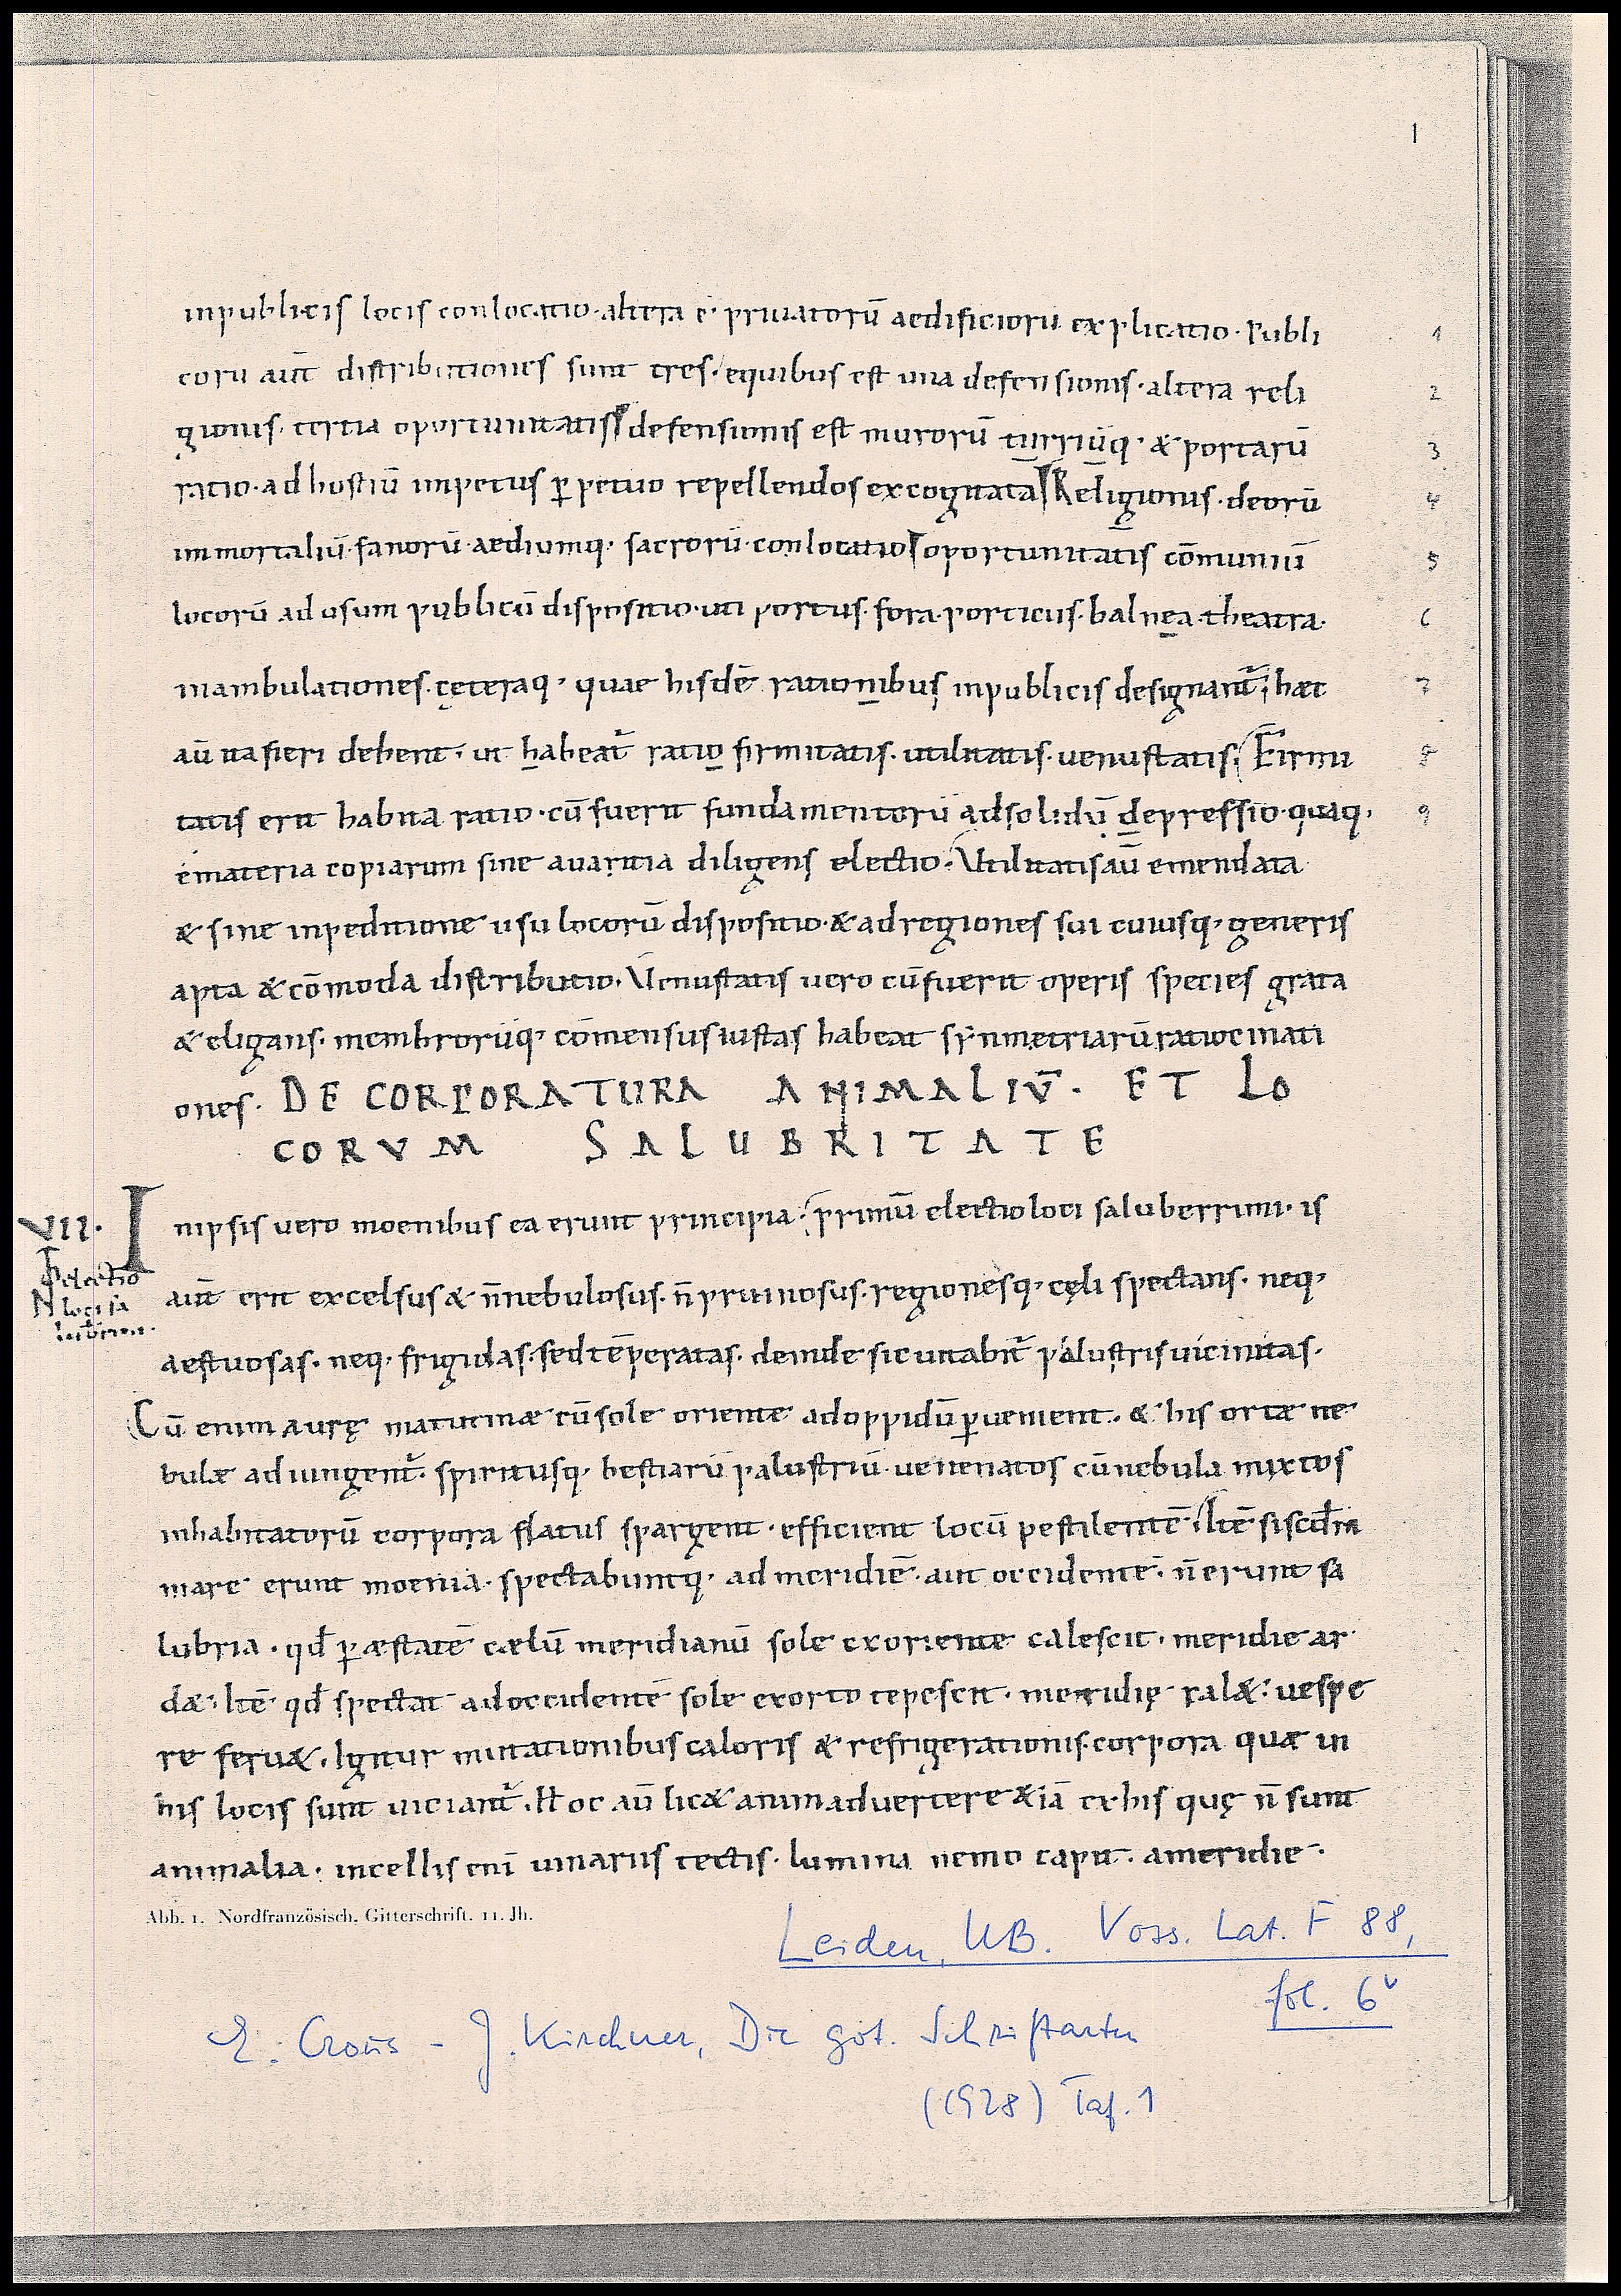 1
inpublicis locis conlocatio· altera ē· priuatorū aedificiorū explicatio· Publi 1
corū aūt distributiones sunt tres· equibus est una defensionis· altera reli 2
gionis· tertia oportunitatis defensionis est murorū turriūq· & portarū 3
ratio· ad hostiū impetus ꝑpetuo repellendos excogitata Religionis· deorū 4
immortaliū· fanorū· aediumq· sacrorū· conlocatio oportunitatis cōmuniū 5
locorū ad usum publicū dispositio· uti portus· fora· porticus· balnea· theatra· 6
inambulationes· cęteraq· quae hisdē rationibus inpublicis designant᷑; haec 7
aū ita fieri debent· ut habeat᷑ ratio firmitatis· utilitatis· uenustatis; Firmi 8
tatis erit habita ratio· cū fuerit fundamentorū adsolidū depressio· quaq· 9
émateria copiarum sine auaritia diligens electio· Utilitatis aū emendata
& sine inpeditione usu locorū dispositio· & ad regiones sui cuiusq· generis
apta & cōmoda distributio· Venustatis uero cū fuerit operis species grata
& eligans· membrorūq· cōmensus iustas habeat synmetriarū ratiocinati
ones· DE CORPORATURA ANIMALIV̄· ET LO
CORVM SALUBRITATE
VII· Inipsis uero moenibus ea erunt principia: primū electio loci saluberrimi· is
electio
loci sa
aūt erit excelsus & n̄ nebulosus· n̄ pruinosus· regionesq· cęli spectans· neq·
aestuosas· neq· frigidas· sed tēperatas· deinde sic uitabit᷑ palustris uicinitas·
Cū enim aurę matutinæ cū sole oriente ad oppidū ꝑuenient· & his ortæ ne
bulæ adiungent᷑· spiritusq· bestiarū palustriū uenenatos cū nebula mixtos
inhabitatorū corpora flatus spargent· efficient locū pestilentē; Itē si scd̄m
mare erunt moenia· spectabuntq· ad meridiē· aut occidentē· n̄ erunt sa
lubria· qd̄ ꝑ æstatē cælū meridianū sole exoriente calescit· meridie ar
dæ· Itē qd̄ spectat ad occidentē sole exorto tepescit· meridię cal&· uespe
re feru&· Igitur mutationibus caloris & refrigerationis· corpora quæ in
his locis sunt uiciant᷑· Hoc aū lic& animaduertere &iā ex his quę n̄ sunt
animalia· incellis enī uinariis tectis· lumina nemo capit· ameridie·
Abb. 1. Nordfranzösisch. Gitterschrift. 11. Jh.
Leiden, UB. Voss. Lat. F 88,
fol. 6v
E. Crous - J. Kirchner, Die got. Schriftarten
(1928) Taf. 1